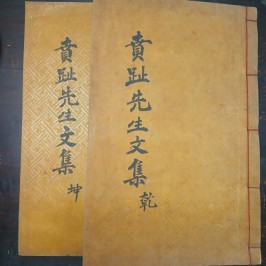 賁趾先生文集 乾
賁趾先生文集 坤